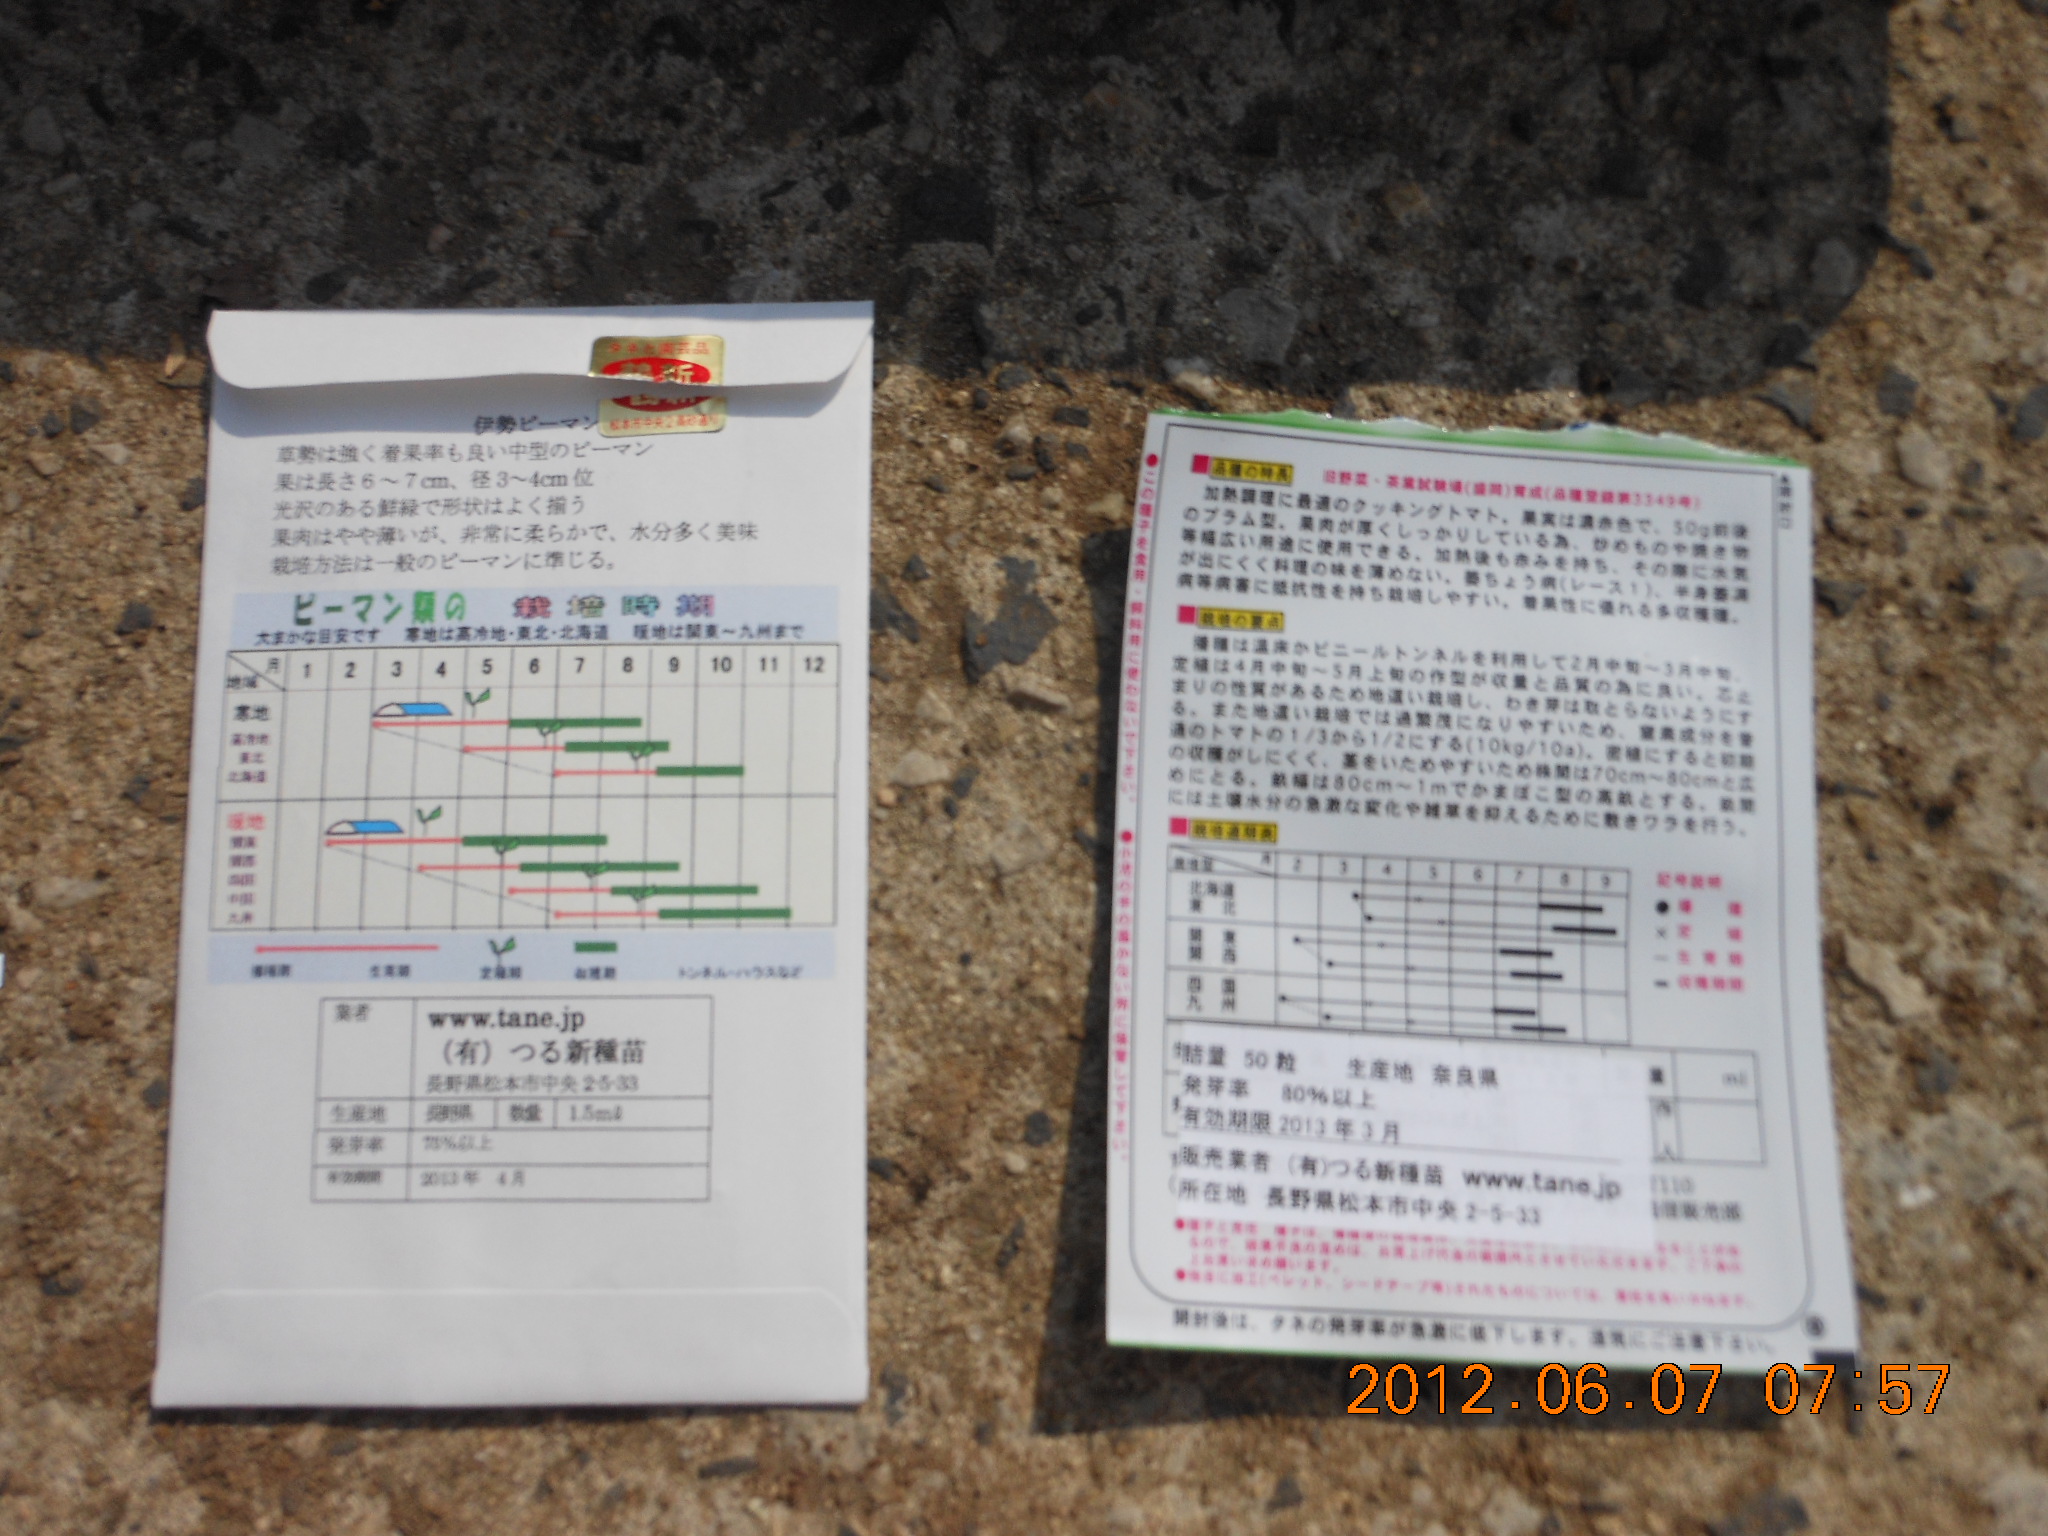 伊勢ピーマン
草勢は強く着果率も良い中型のピーマン
果は長さ6～7cm、径3～4cm位
光沢のある鮮緑で形状はよく揃う
果肉はやや薄いが、非常に柔らかで、水分多く美味
栽培方法は一般のピーマンに準じる。
ピーマン類の 栽培時期
大まかな目安です 寒地は高冷地・東北・北海道 暖地は関東～九州まで
月 1 2 3 4 5 6 7 8 9 10 11 12
地域
寒地
高冷地
東北
北海道
暖地
関東
関西
四国
中国
九州
播種期 生育期 定植期 収穫期 トンネル・ハウスなど
業者 www.tane.jp
(有)つる新種苗
長野県松本市中央2-5-33
生産地 長野県 数量 1.5mℓ
発芽率 75%以上
有効期限 2013年 4月
品種の特長 旧野菜・茶業試験場(盛岡)育成(品種登録第3349号)
加熱調理に最適のクッキングトマト。果実は濃赤色で、50g前後
のプラム型。果肉が厚くしっかりしている為、炒めものや焼き物
等幅広い用途に使用できる。加熱後も赤みを持ち、その際に水気
が出にくく料理の味を薄めない。萎ちょう病(レース1)、半身萎凋
病等病害に抵抗性を持ち栽培しやすい。着果性に優れる多収穫種。
栽培の要点
播種は温床かビニールトンネルを利用して2月中旬～3月中旬、
定植は4月中旬～5月上旬の作型が収量と品質の為に良い。芯止
まりの性質があるため地這い栽培し、わき芽は取とらないようにす
る。また地這い栽培では過繁茂になりやすいため、窒素成分を普
通のトマトの1/3から1/2にする(10kg/10a)。密植にすると初期
の収穫がしにくく、茎をいためやすいため株間は70cm～80cmと広
めにとる。畝幅は80cm～1mでかまぼこ型の高畝とする。畝間
には土壌水分の急激な変化や雑草を抑えるために敷きワラを行う。
栽培適期表
月 2 3 4 5 6 7 8 9
北海道
東北
関東
関西
四国
九州
記号説明
播種
定植
生育期
収穫期間
詰量 50粒 生産地 奈良県
発芽率 80%以上
有効期限 2013年3月
販売業者 (有)つる新種苗 www.tane.jp
所在地 長野県松本市中央2-5-33
量 ml
開封後は、タネの発芽率が急激に低下します。湿気にご注意下さい。
この種子を食用・飼料用に使わないで下さい。
2012.06.07 07:57